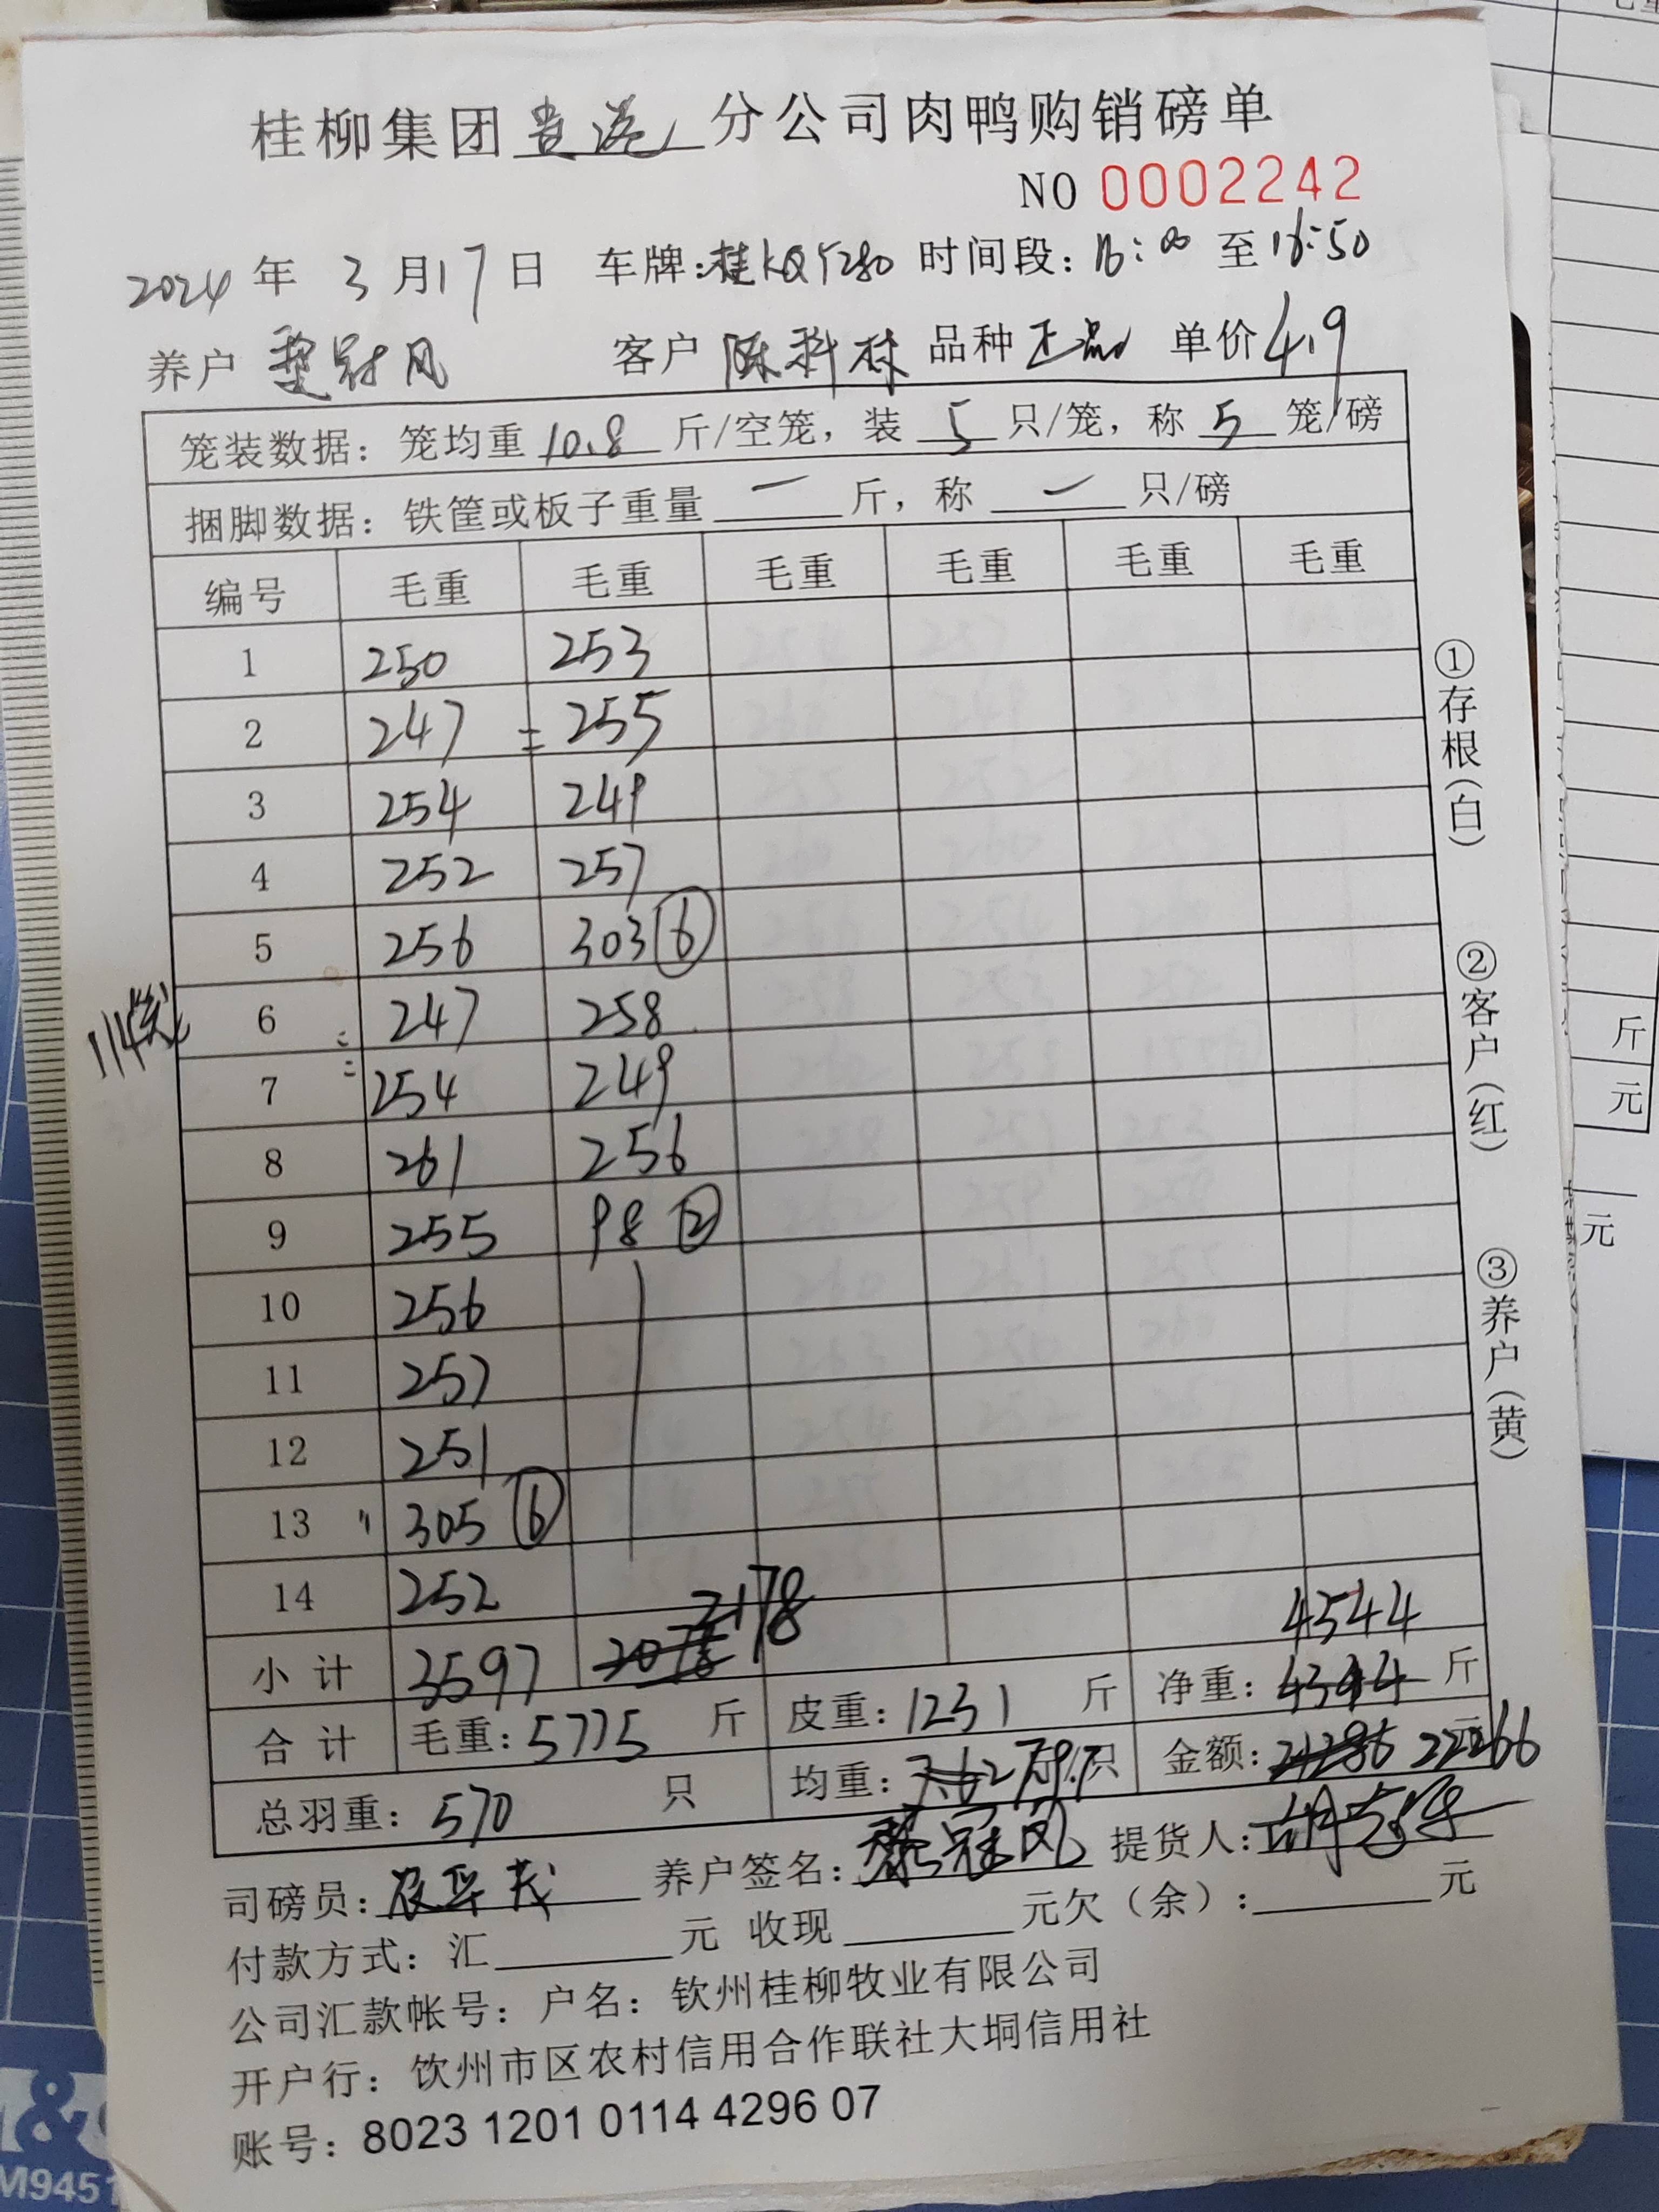 桂柳集团贵港分公司肉鸭购销磅单
NO 0002242
2024年 3月17日 车牌:桂KQ5280 时间段:16:00至16:50
养户 黎冠凤 客户 陈科林 品种正品 单价4.9
笼装数据: 笼均重10.8斤/空笼, 装5只/笼, 称5笼/磅
捆脚数据: 铁筐或板子重量 一 斤, 称 一 只/磅
编号 毛重 毛重 毛重 毛重 毛重 毛重
1 250 253
2 247 255
3 254 249
4 252 257
5 256 303⑥
6 247 258
7 254 249
8 261 256
9 255 98②
10 256
11 257
12 251
13 305⑥
14 252
114笼
小计 3597 2078 2178
合计 毛重:5775斤 皮重:1231斤 净重:4344 4544斤
总羽重:570只 均重:7.62 7.97斤/只 金额:21286 22266元
司磅员: 养户签名:黎冠凤 提货人:
付款方式: 汇____元 收现____元欠(余):____元
公司汇款帐号: 户名: 钦州桂柳牧业有限公司
开户行: 钦州市区农村信用合作联社大垌信用社
账号: 8023 1201 0114 4296 07
①存根(白)
②客户(红)
③养户(黄)
斤
元
元
M9451